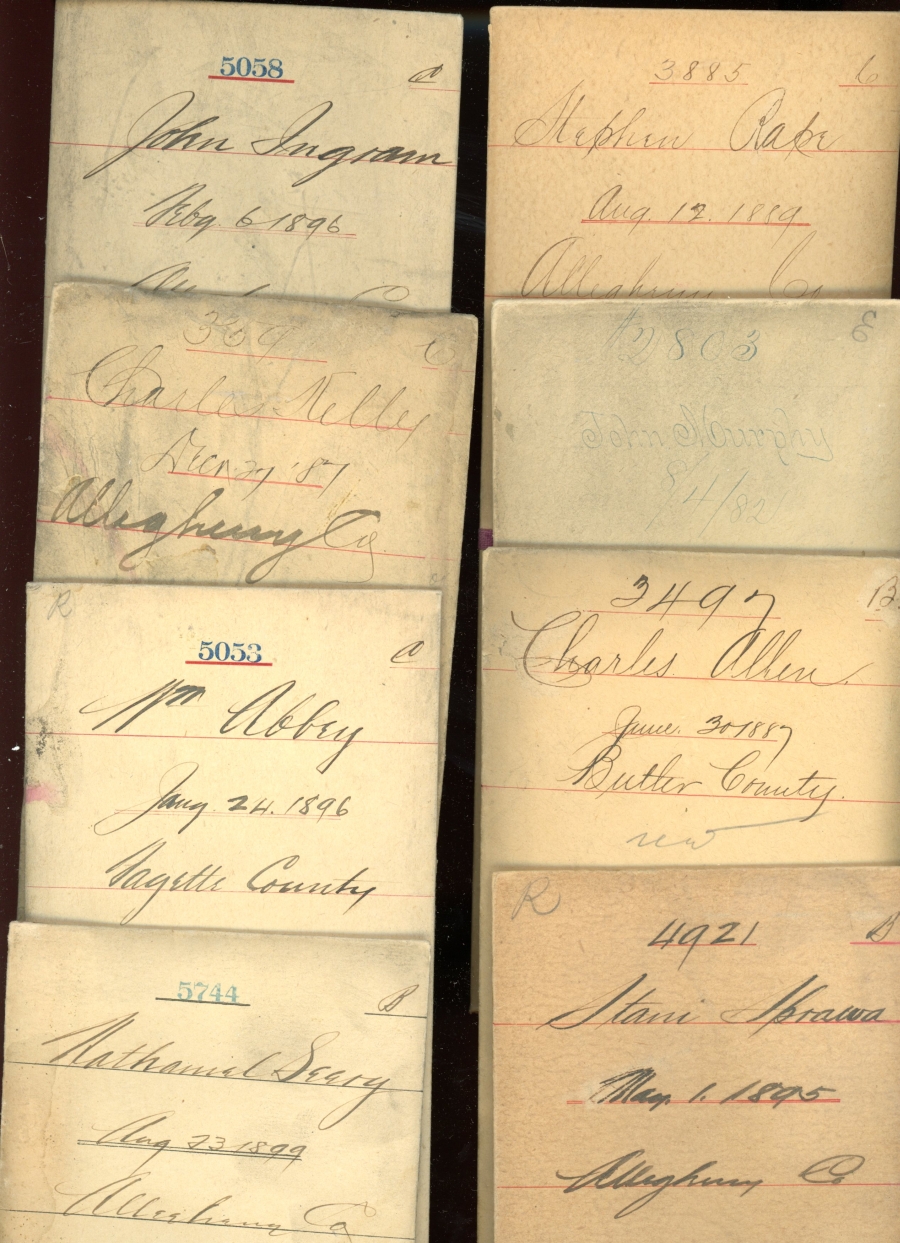 5058 C
John Ingram
Feby. 6 1896
309 C
Charles Kelley
Decr 27 '87
Allegheny Co.
R
5053 C
Wm Abbey
Jany 24. 1896
Fayette County
5744 B
Nathanial Seary
Aug 23 1899
Allegheny Co
3885 C
Stephen Rape
Aug. 12. 1889
Allegheny Co
#2803 E
9/11/82
3497 B.
Charles Allen.
June. 30 1887
Butler County.
new
R
4921 B
Stani Skrawa
May. 1. 1895
Allegheny Co